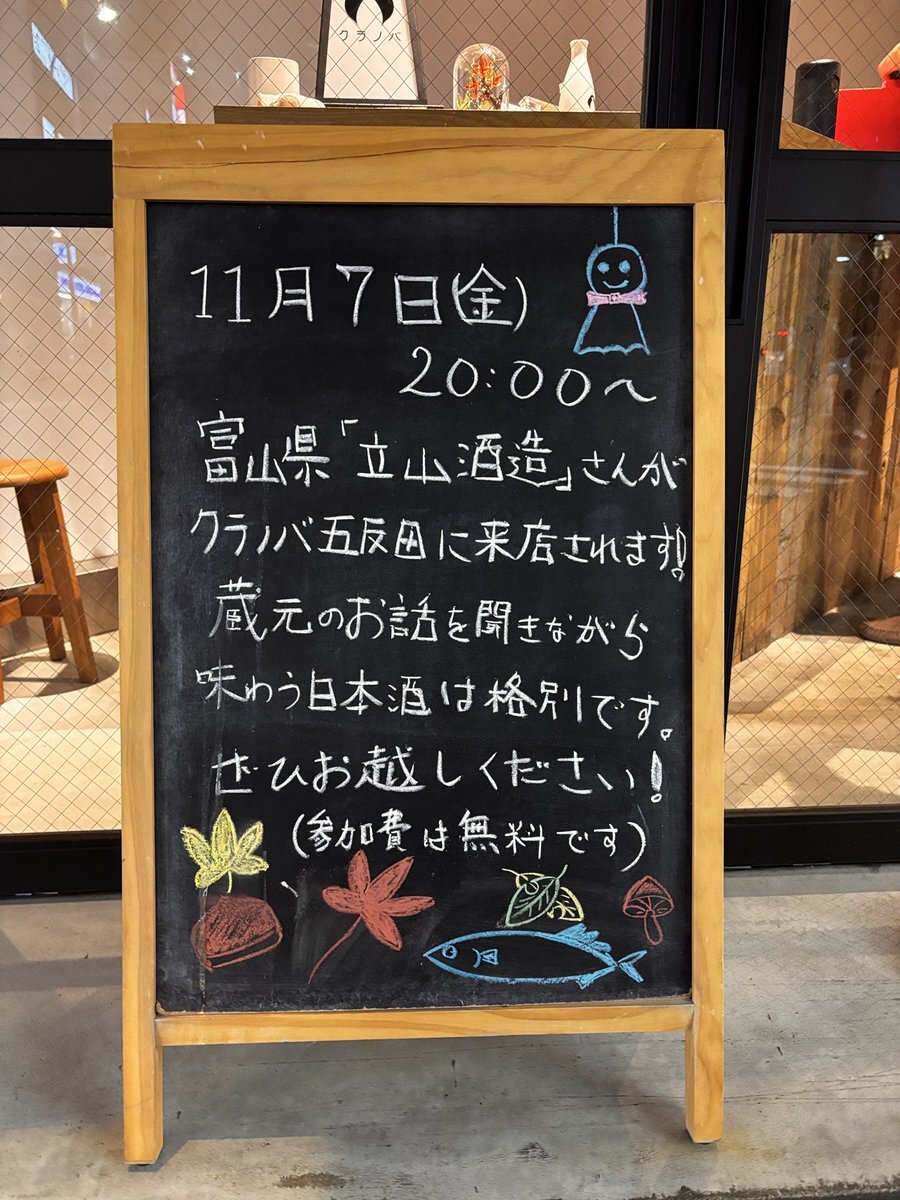 クラノバ
11月7日(金)
20:00〜
富山県「立山酒造」さんが
クラノバ五反田に来店されます!
蔵元のお話を聞きながら
味わう日本酒は格別です。
ぜひお越しください!
(参加費は無料です)